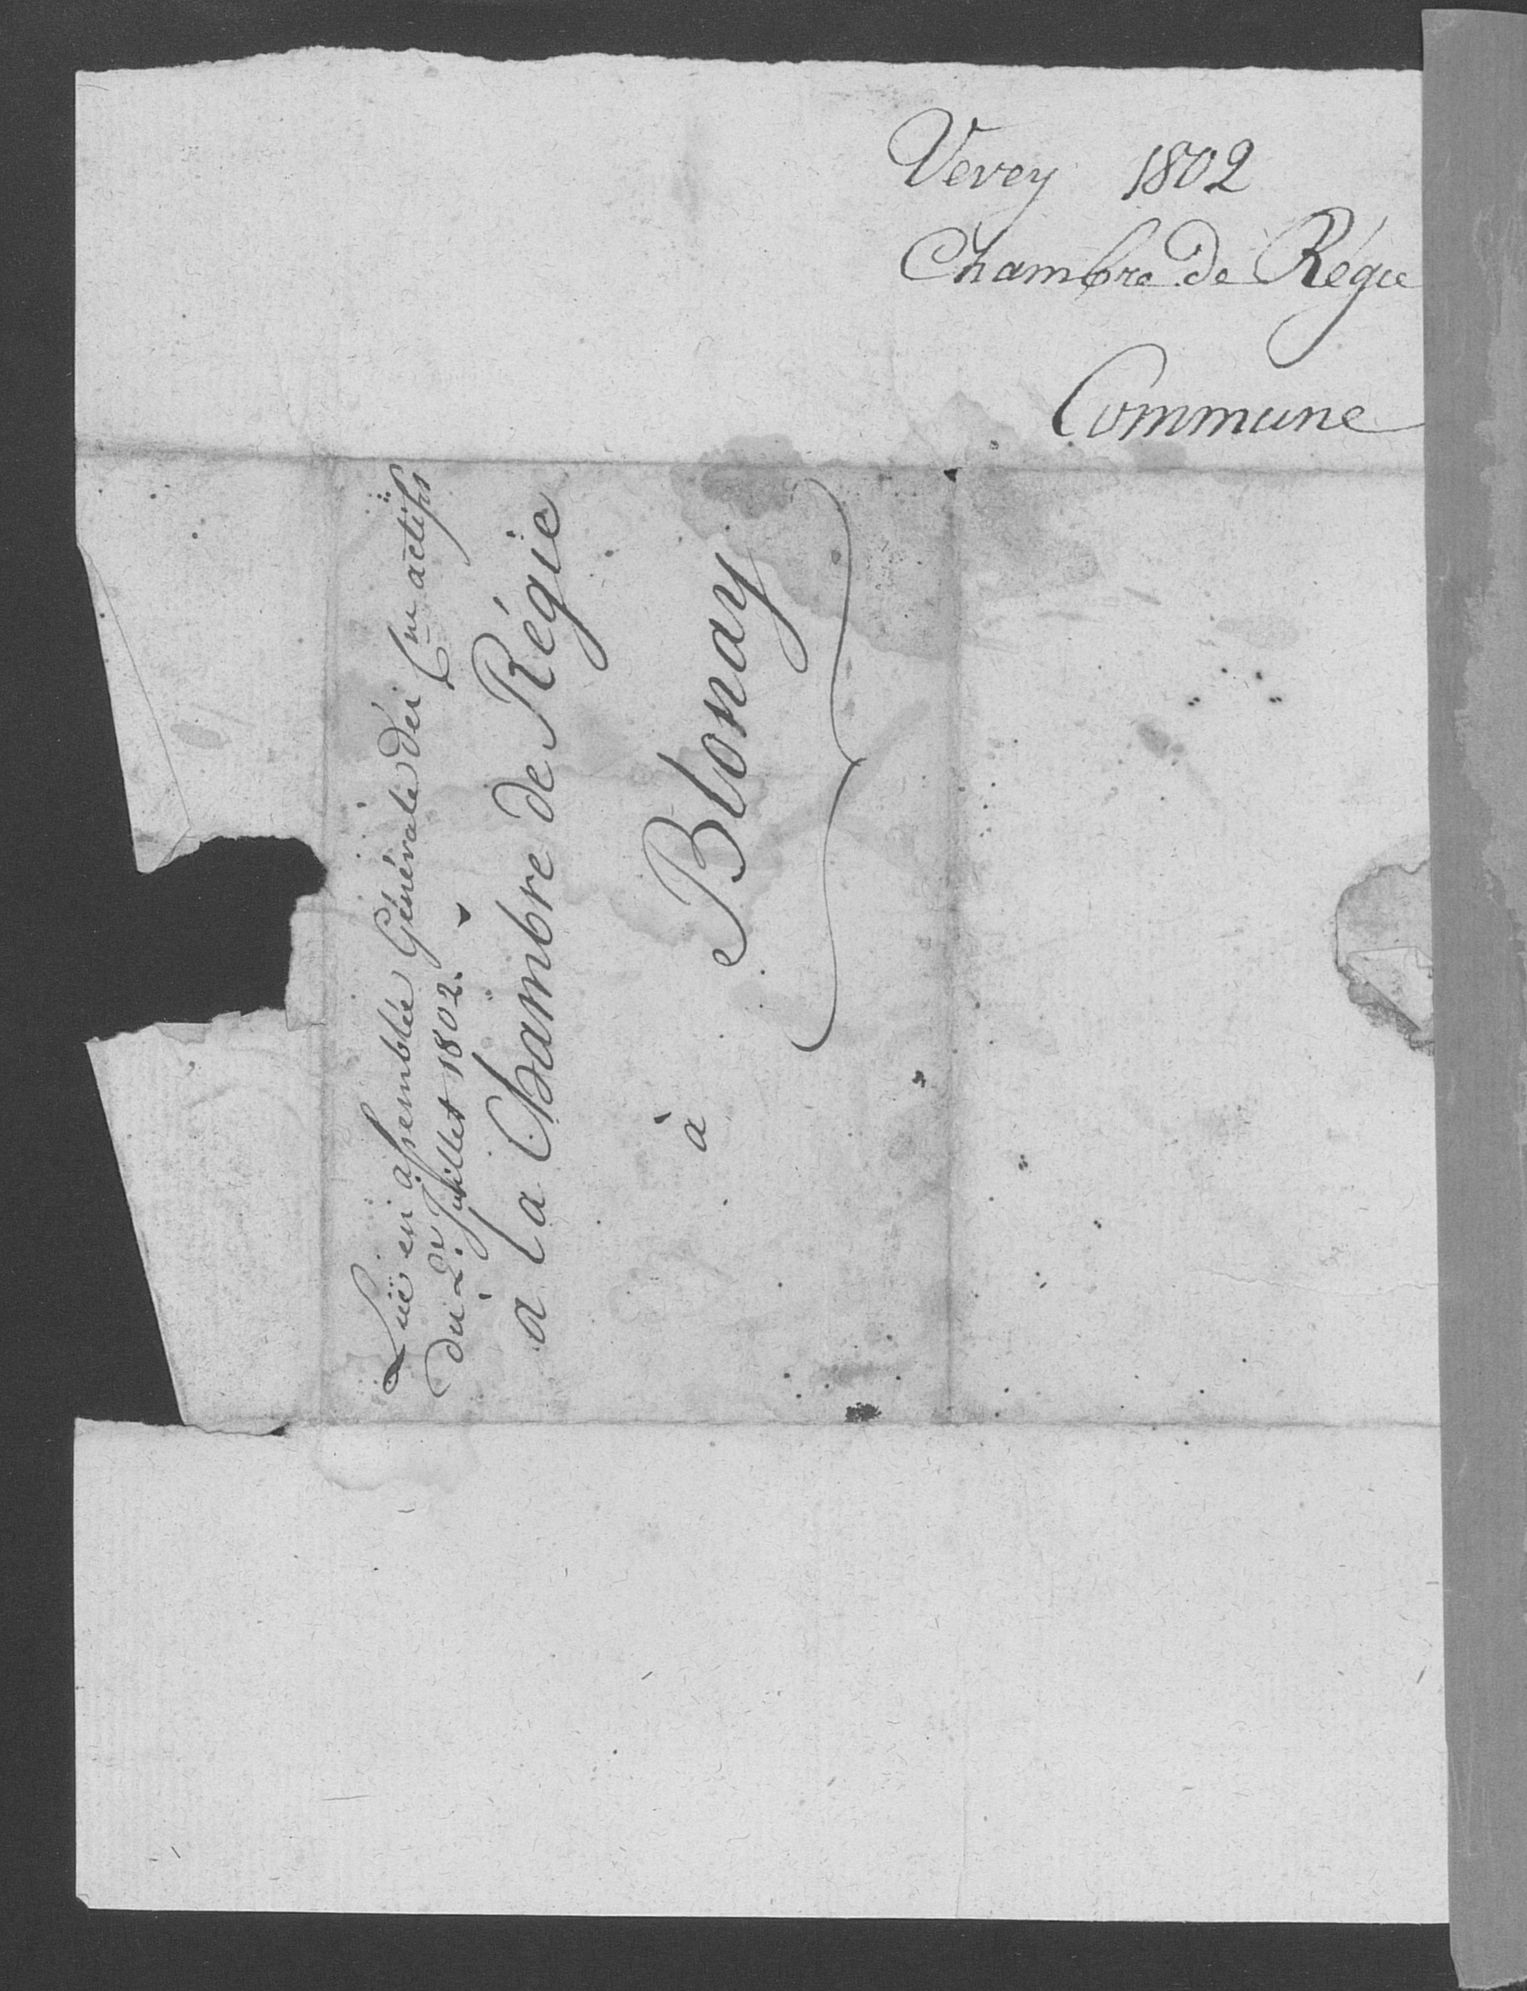 Vevey 1802
Chambre de Régie
Commune
Luë en assemblée Générale des C.ns actifs
du 2.e Juillet 1802.
à la Chambre de Régie
à Blonay